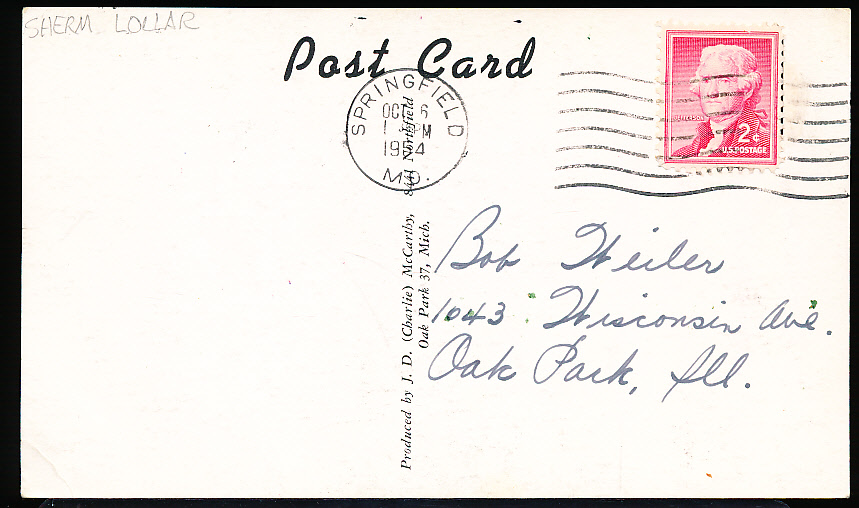 SHERM LOLLAR
Post Card
SPRINGFIELD
OCT 6
PM
1954
MO.
JEFFERSON
2¢
U.S. POSTAGE
8441 Northfield
Produced by J. D. (Charlie) McCarthy,
Oak Park 37, Mich.
Bob Weiler
1043 Wisconsin Ave.
Oak Park, Ill.